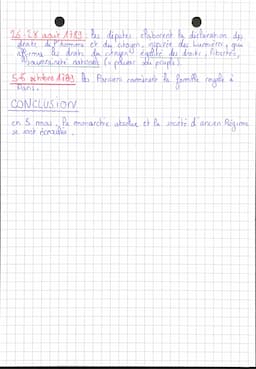 26-28 août 1789 : les députés élaborent la déclaration des
droits de l'homme et du citoyen, inspirée des lumières, qui
affirme les droits du citoyen : égalité des droits, libertés,
souveraineté nationale (= pouvoir du peuple)
5-6 octobre 1789 les Parisiens ramènent la famille royale à
Paris.
CONCLUSION
en 5 mois, la monarchie absolue et la société d'ancien Régime
se sont écroulées.